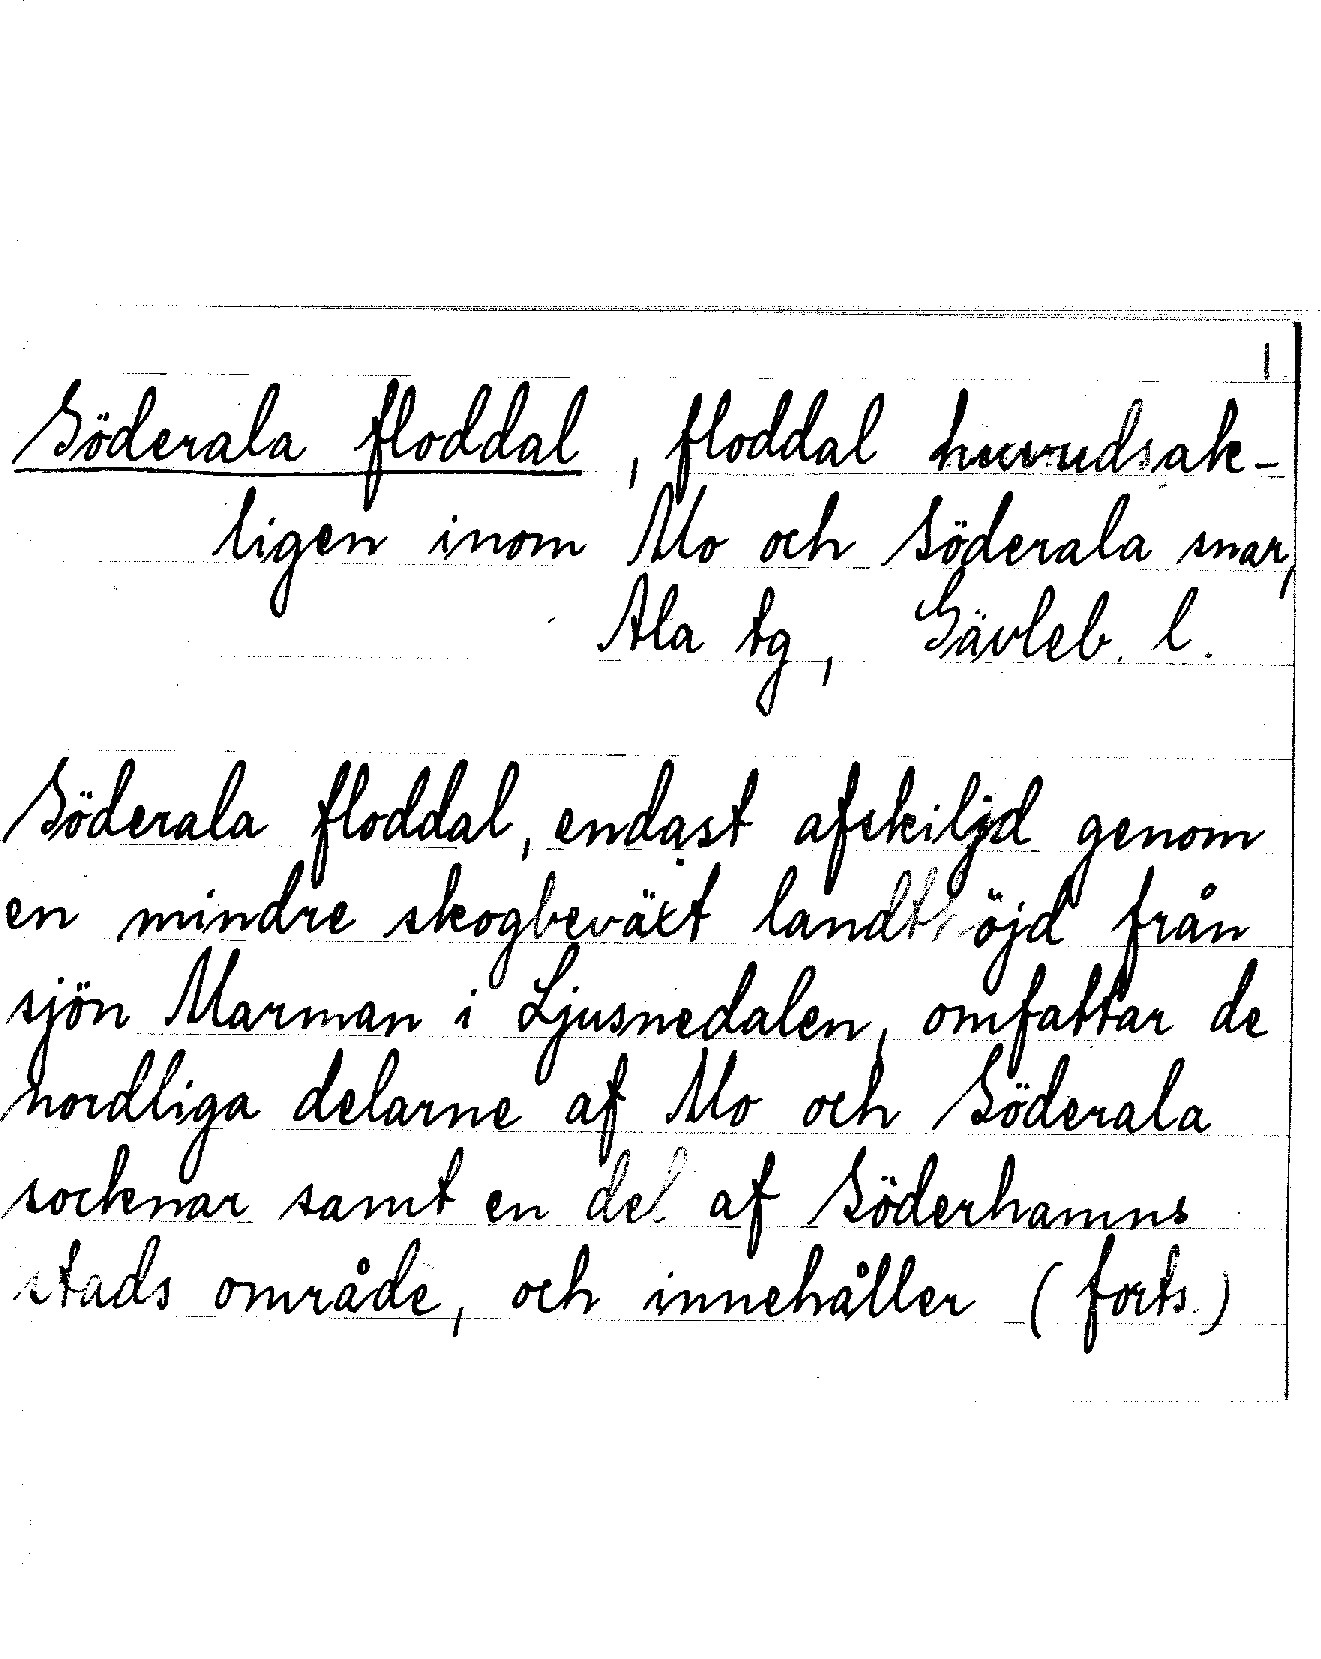 1
Söderala floddal, floddal huvudsak-
ligen inom Mo och Söderala snar,
Ala tg, Gävleb. l.
Söderala floddal, endast afskiljd genom
en mindre skogbeväxt landthöjd från
sjön Marman i Ljusnedalen, omfattar de
nordliga delarne af Mo och Söderala
socknar samt en del af Söderhamns
stads område, och innehåller (forts.)